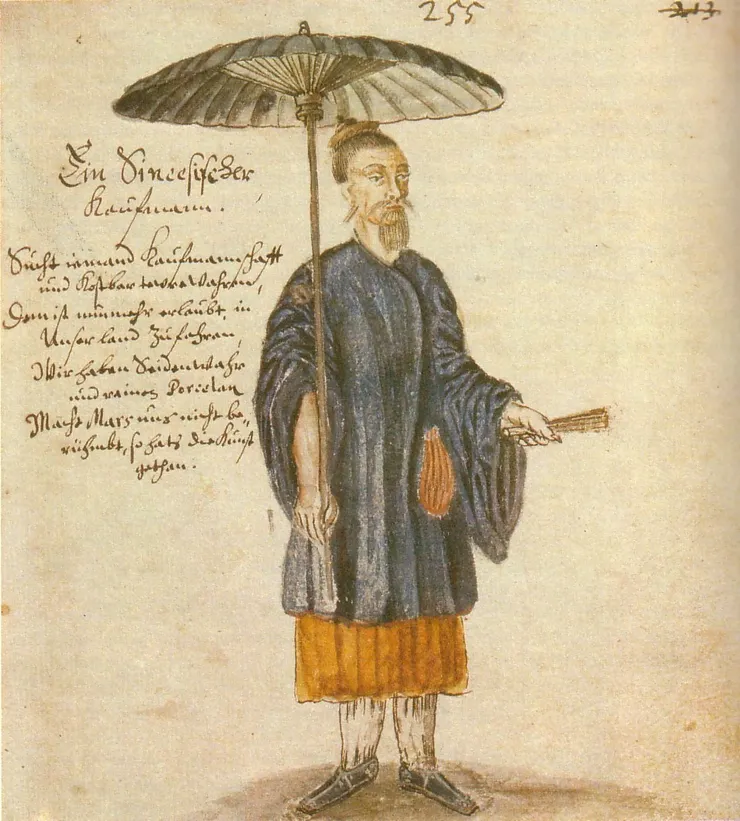 255
213
Ein Sineesischer
Kaufmann.
Sucht iemand Kaufmannschafft
und Kostbar tewre Wahren,
Dem ist nunmehr erlaubt, in
Unser land Zufahren,
Wir haben Seidenwahr
und reinen Porcelan
Macht Mars uns nicht be-
rühmbt, so hats die Kunst
gethan.